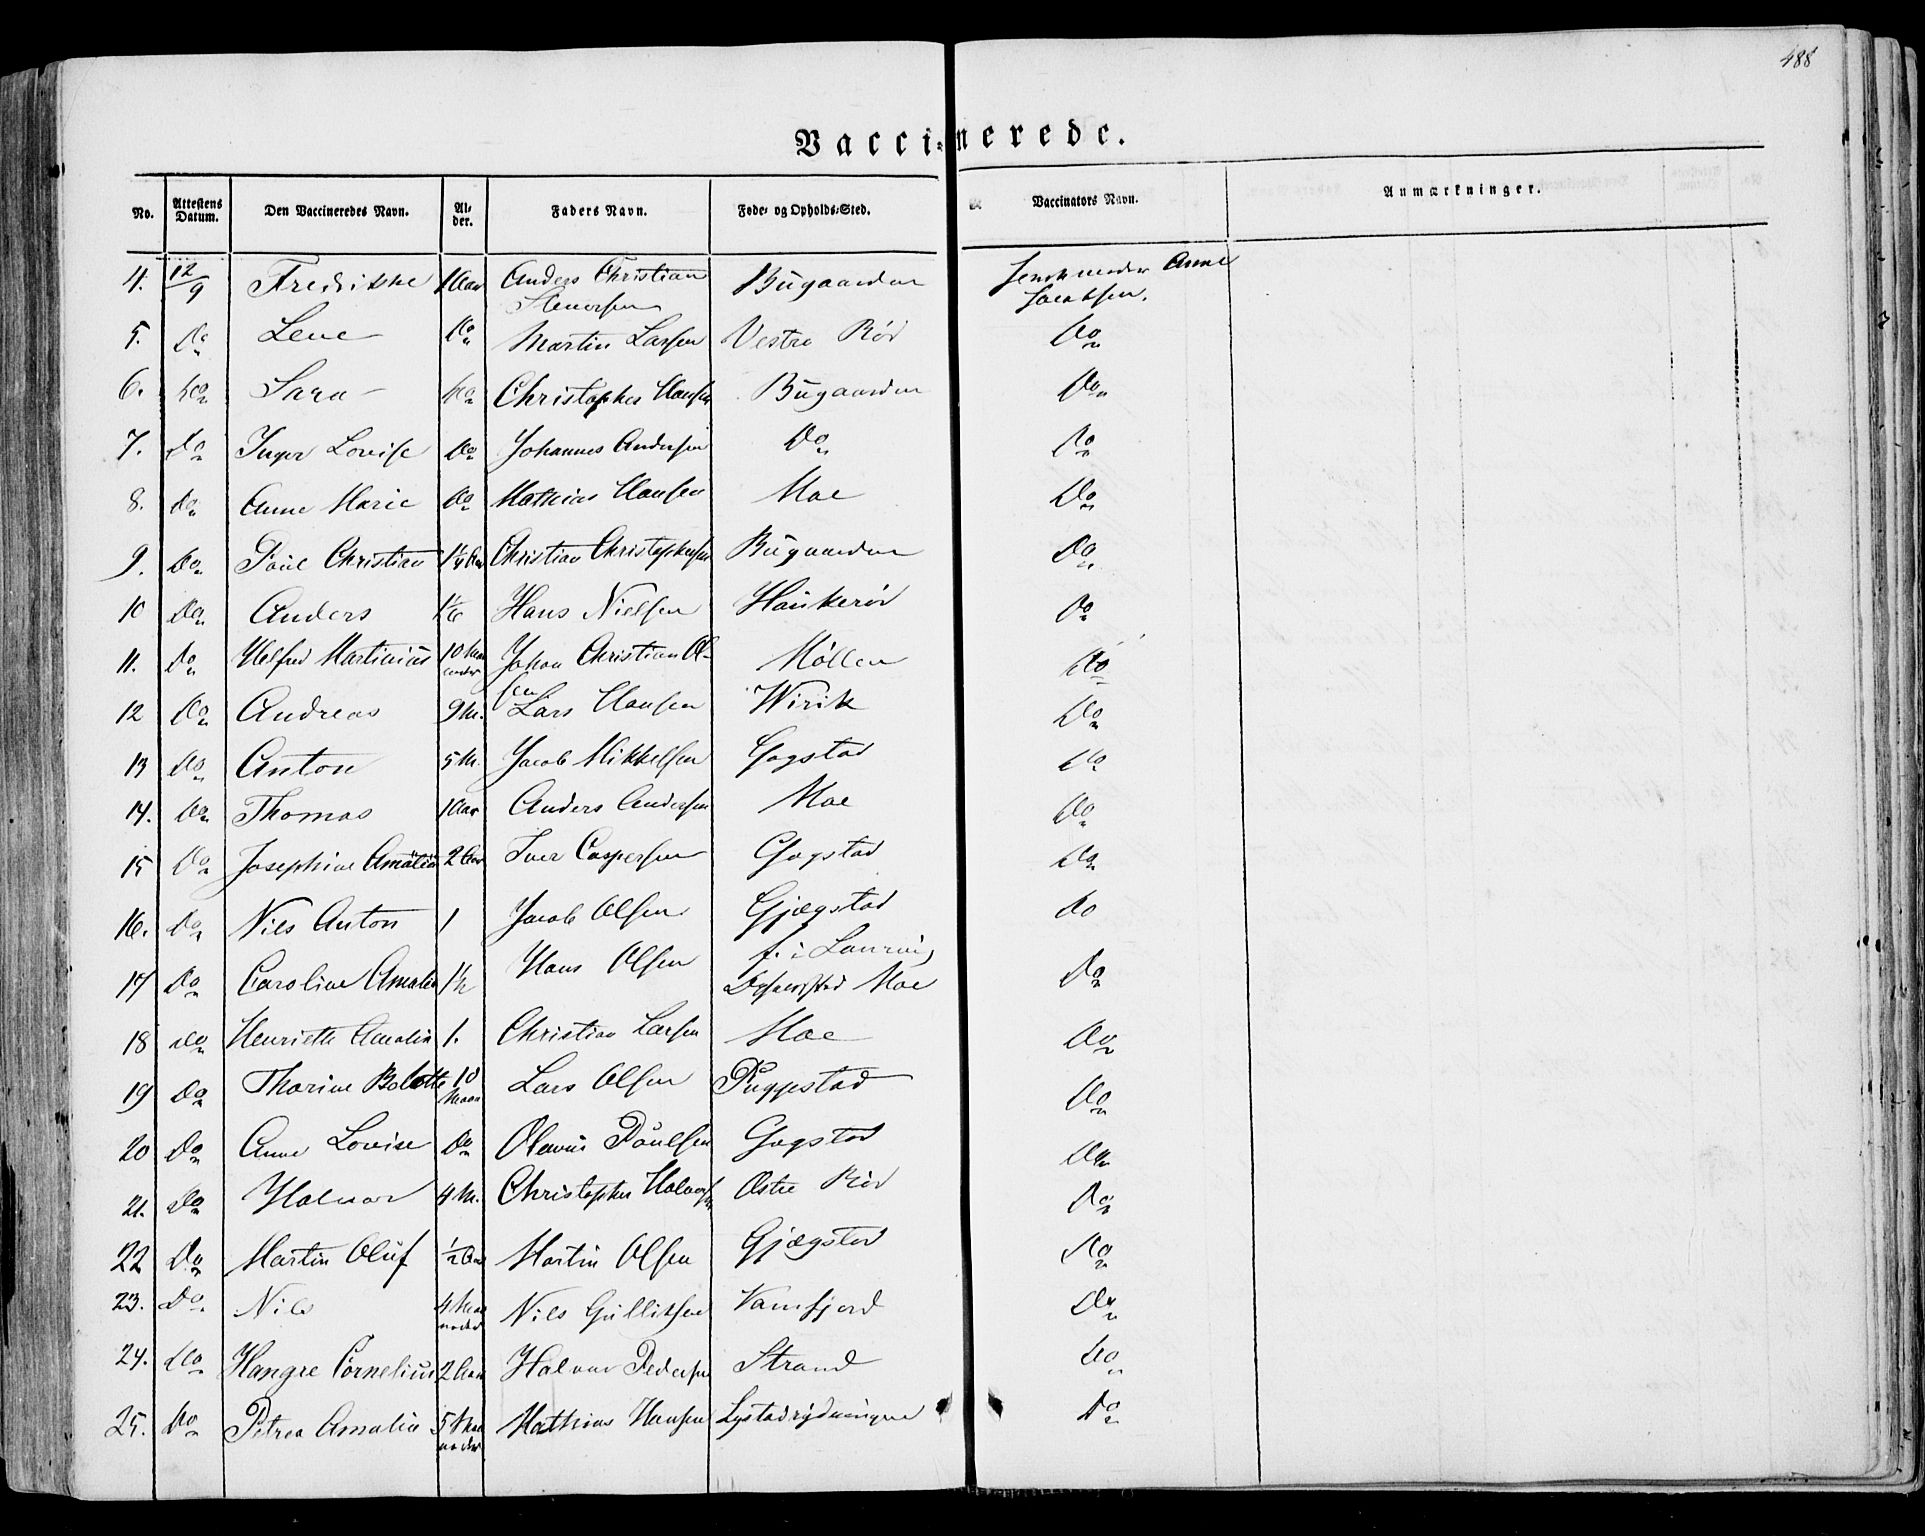 488
Vaccinerede.
No. Attestens Datum. Den Vaccineredes Navn. Alder. Faders Navn. Føde- og Opholds-Sted. Vaccinators Navn. Anmærkninger.
4. 12/9 Fredrikke 1 Aar Anders Christian Bugaarden Anne
Jacobsen.
5. Do Lene Do Martin Larsen Vestre Rød Do
6. Do Sara Do Christopher Hansen Bugaarden Do
7. Do Inger Lovise Do Johannes Andersen Do Do
8. Do Anne Marie Do Mathias Hansen Moe Do
9. Do Paul Christian 1¼ Aar Christian Christophersen Bugaarden Do
10 Do Anders 1/6 Hans Nielsen Haukerød Do
11. Do Martinius 10 Maa Johan Christian Ol- Møllen Do
neder sen
12 Do Andreas 9 M. Lars Hansen Wirik Do
13 Do Anton 5 M. Jacob Mikkelsen Gogstad Do
14. Do Thomas 1 Aar Anders Andersen Moe Do
15 Do Josephine Amalia 2 Aar Iver Caspersen Gogstad Do
16. Do Nils Anton 1 Jacob Olsen Gjægstad Do
f. i Laurvig
17 Do Caroline Amalia 1½ Hans Olsen Moe Do
18 Do Henriette Amalia 1. Christian Larsen Moe Do
19 Do Thorine Bolette 10 Lars Olsen Puggestad Do
Maan
20 Do Anne Lovise Do Olavus Paulsen Gogstad Do
21. Do Halvor 4 M. Christopher Halvorsen Østre Rød Do
22 Do Martin Oluf ½ Aar Martin Olsen Gjægstad Do
23. Do Nils 4 Maa Nils Gullitsen Do
neder
24. Do Hangre Cornelius 2 Aar Halvor Pedersen Strand Do
25. Do Petrea Amalia 5 Maa Mathias Hansen Lystadrydningen Do
neder